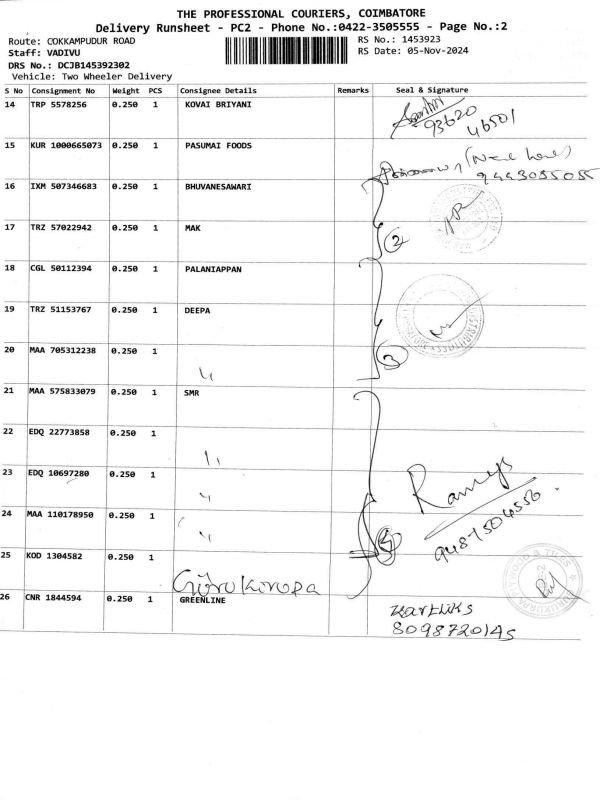 THE PROFESSIONAL COURIERS, COIMBATORE
Delivery Runsheet - PC2 - Phone No.:0422-3505555 - Page No.:2
Route: COKKAMPUDUR ROAD
RS No.: 1453923
Staff: VADIVU
RS Date: 05-Nov-2024
DRS No.: DCJB145392302
Vehicle: Two Wheeler Delivery
S No Consignment No Weight PCS Consignee Details Remarks Seal & Signature
14 TRP 5578256 0.250 1 KOVAI BRIYANI
93620
46501
15 KUR 1000665073 0.250 1 PASUMAI FOODS
9443055055
16 IXM 507346683 0.250 1 BHUVANESAWARI
17 TRZ 57022942 0.250 1 MAK
2
18 CGL 50112394 0.250 1 PALANIAPPAN
19 TRZ 51153767 0.250 1 DEEPA
20 MAA 705312238 0.250 1
3
21 MAA 575833079 0.250 1 SMR
22 EDQ 22773858 0.250 1
23 EDQ 10697280 0.250 1
Ramesh
9487504556
24 MAA 110178950 0.250 1
25 KOD 1304582 0.250 1
Guru Kirupa
26 CNR 1844594 0.250 1 GREENLINE
Karthiks
8098720145